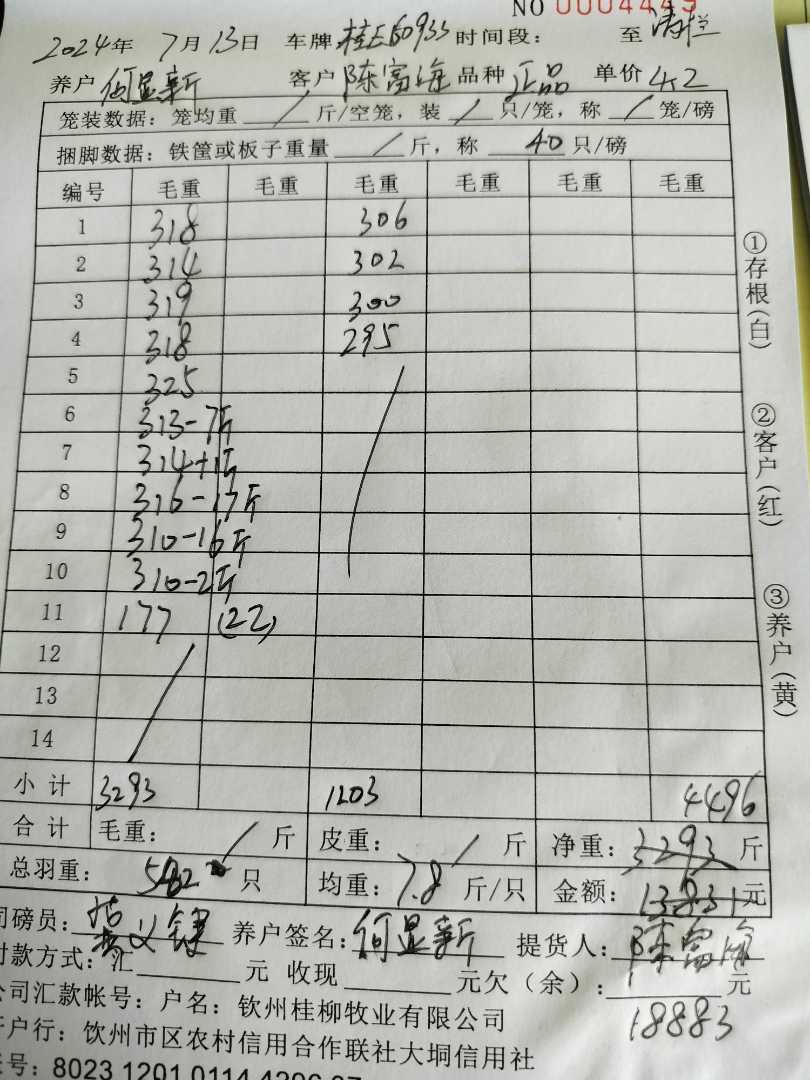 NO 0004449
2024年 7月13日 车牌 桂E60933 时间段: 至 清栏
养户 何显新 客户 陈富海 品种 正品 单价 4.2
笼装数据: 笼均重 / 斤/空笼, 装 / 只/笼, 称 / 笼/磅
捆脚数据: 铁筐或板子重量 / 斤, 称 40 只/磅
编号 毛重 毛重 毛重 毛重 毛重 毛重
1 318 306
2 314 302
3 319 300
4 318 295
5 325
6 313-7斤
7 314+1斤
8 316-17斤
9 310-16斤
10 310-2斤
11 177 (22)
12
13
14
小计 3293 1203 4496
合计 毛重: / 斤 皮重: / 斤 净重: 3293 斤
总羽重: 582 只 均重: 7.8 斤/只 金额: 13831 元
司磅员: 养户签名: 何显新 提货人: 陈富海
付款方式: 汇 元 收现 元欠(余): 元
18883
公司汇款帐号: 户名: 钦州桂柳牧业有限公司
开户行: 钦州市区农村信用合作联社大垌信用社
帐号: 8023 1201 0114 4296 97
①存根(白)
②客户(红)
③养户(黄)